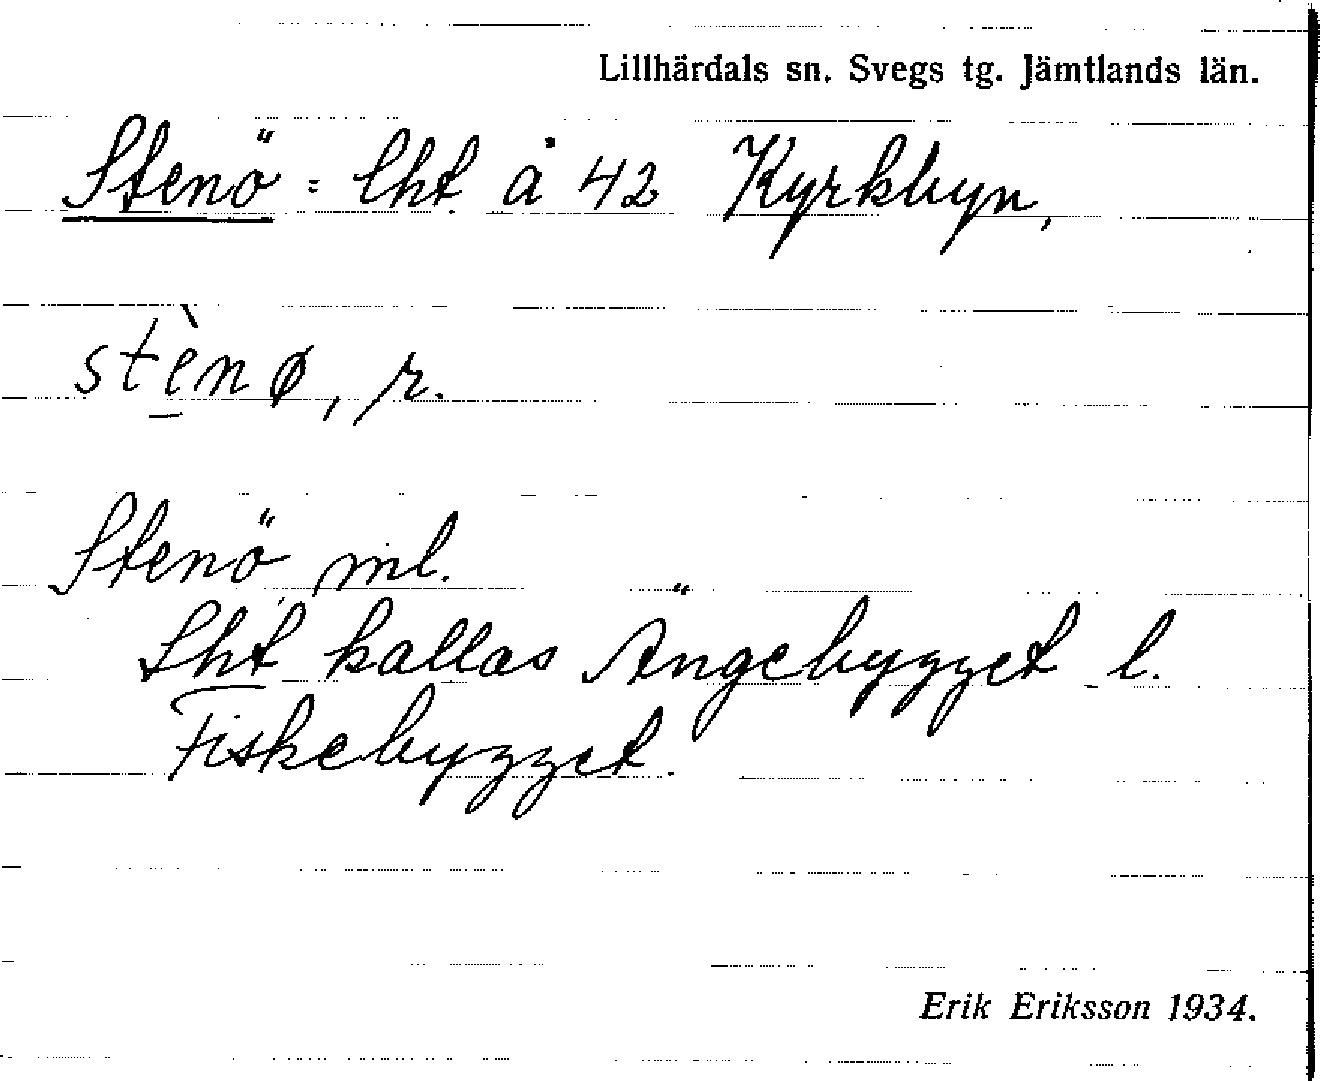 Lillhärdals sn. Svegs tg. Jämtlands län.
Stenö : lht å 42 Kyrkbyn,
stènø, r.
Stenö ml.
Lht kallas Ängebygget l.
Fiskebygget.
Erik Eriksson 1934.